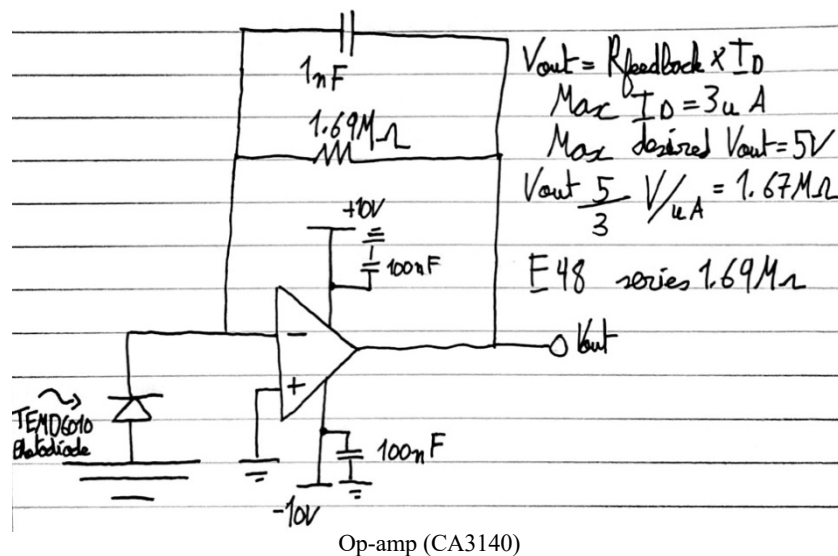 1nF
1.69MΩ
+10V
100nF
-
+
TEMD6010
Photodiode
100nF
-10V
Vout
Vout = Rfeedback x ID
Max ID = 3u A
Max desired Vout = 5V
Vout 5/3 V/uA = 1.67MΩ
E48 series 1.69MΩ
Op-amp (CA3140)